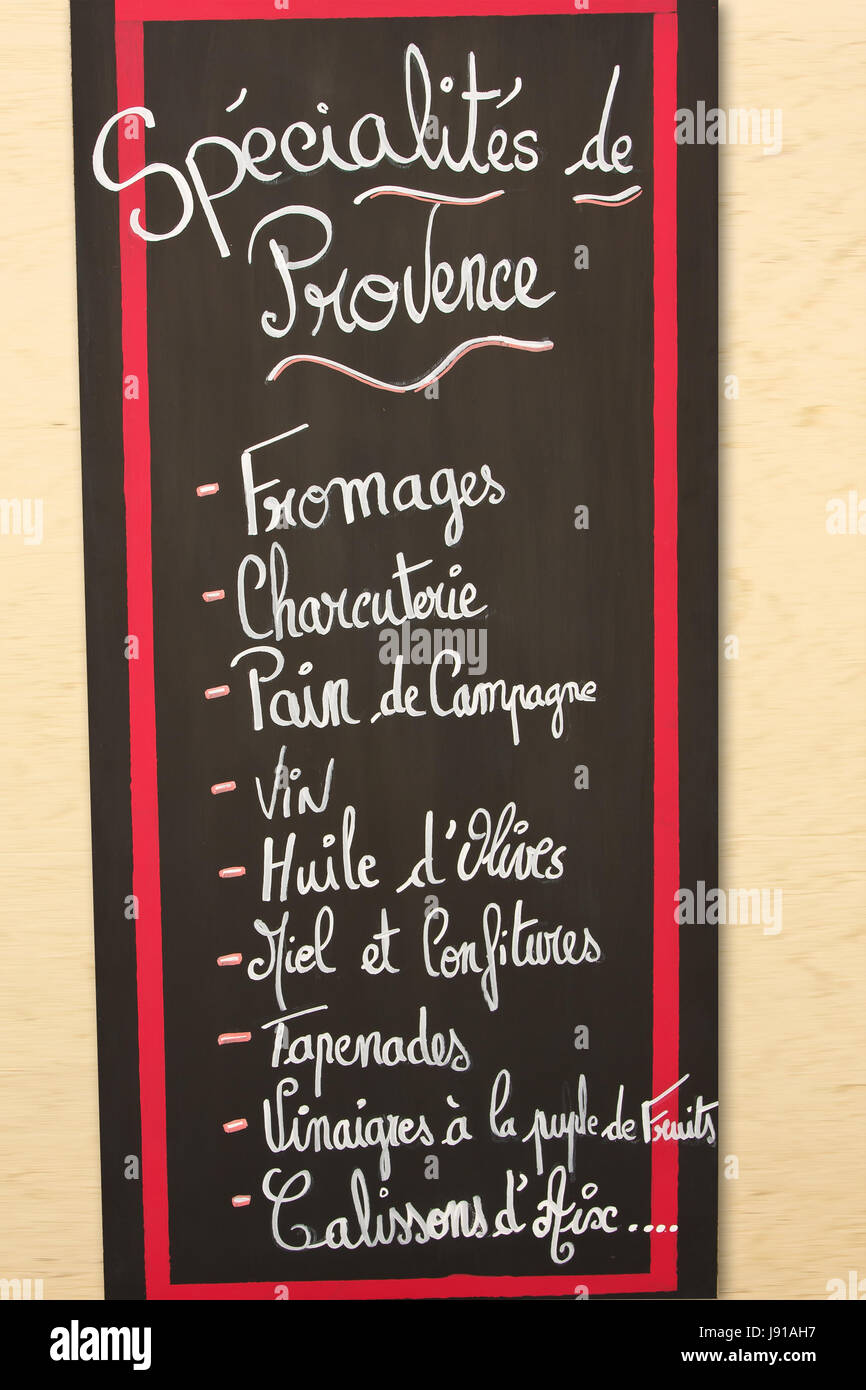 Spécialités de
Provence
- Fromages
- Charcuterie
- Pain de Campagne
- Vin
- Huile d'Olives
- Miel et Confitures
- Tapenades
- Vinaigres à la pulpe de Fruits
- Calissons d'Aix....
alamy
Image ID: J91AH7
www.alamy.com